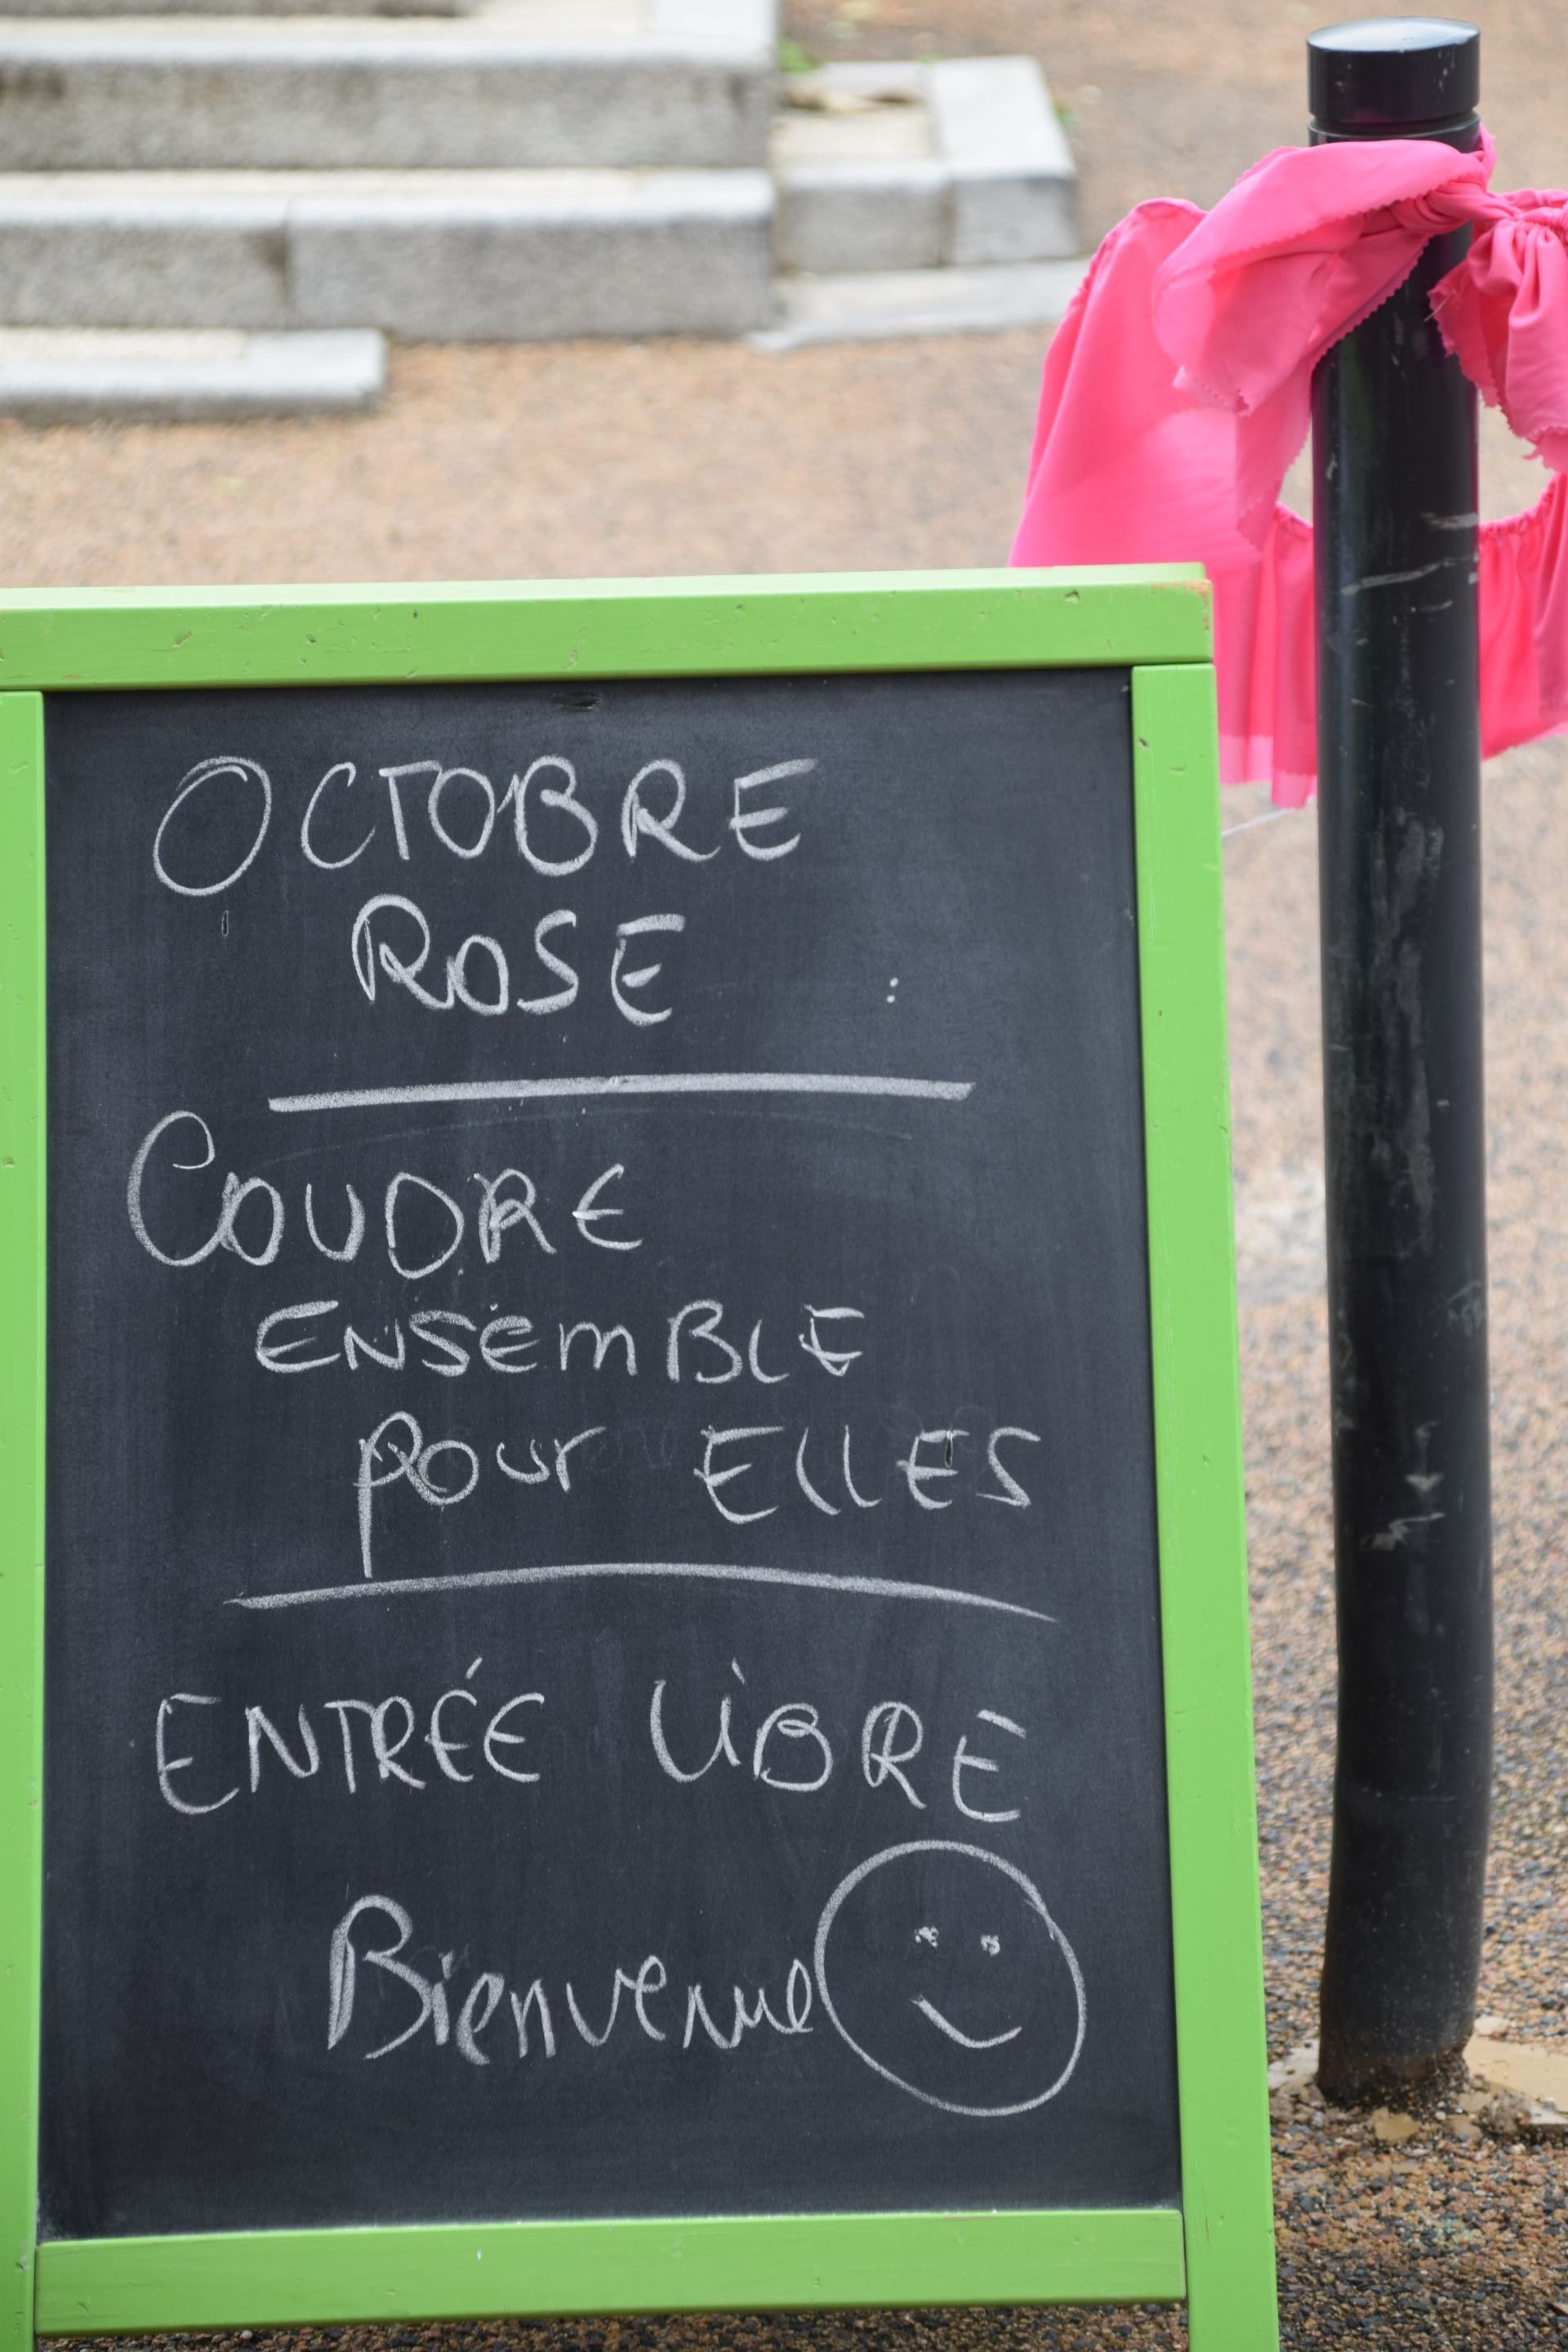 OCTOBRE
ROSE
COUDRE
ENSEMBLE
pour ELLES
ENTRÉE LIBRE
Bienvenue